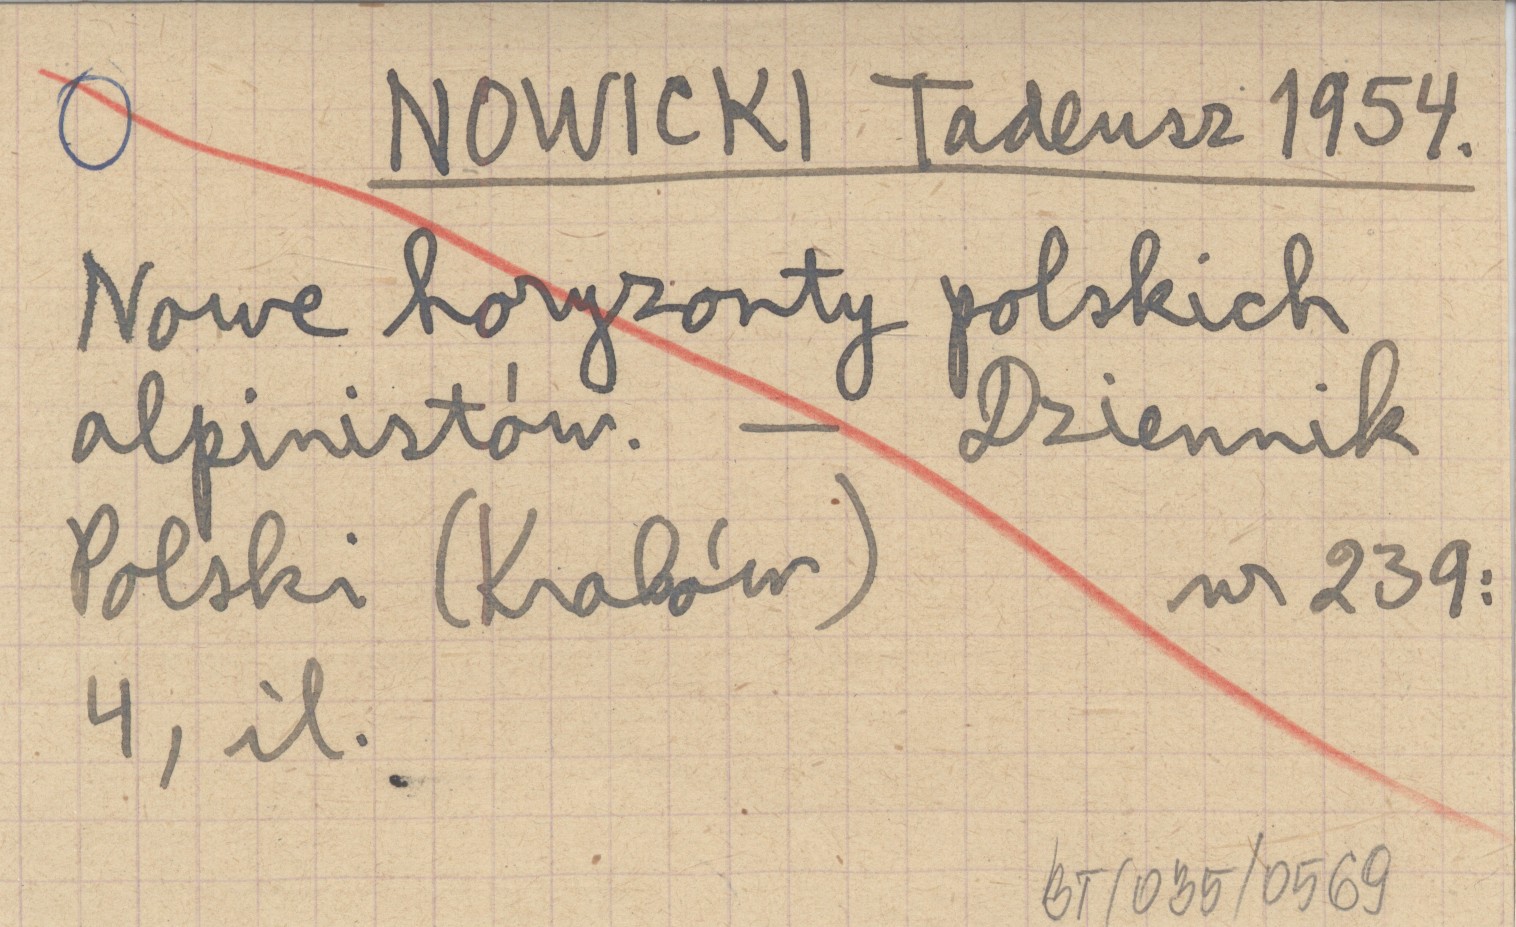 O NOWICKI Tadeusz 1954.
Nowe horyzonty polskich
alpinistów. — Dziennik
Polski (Kraków) nr 239:
4, il.
BT/035/0569